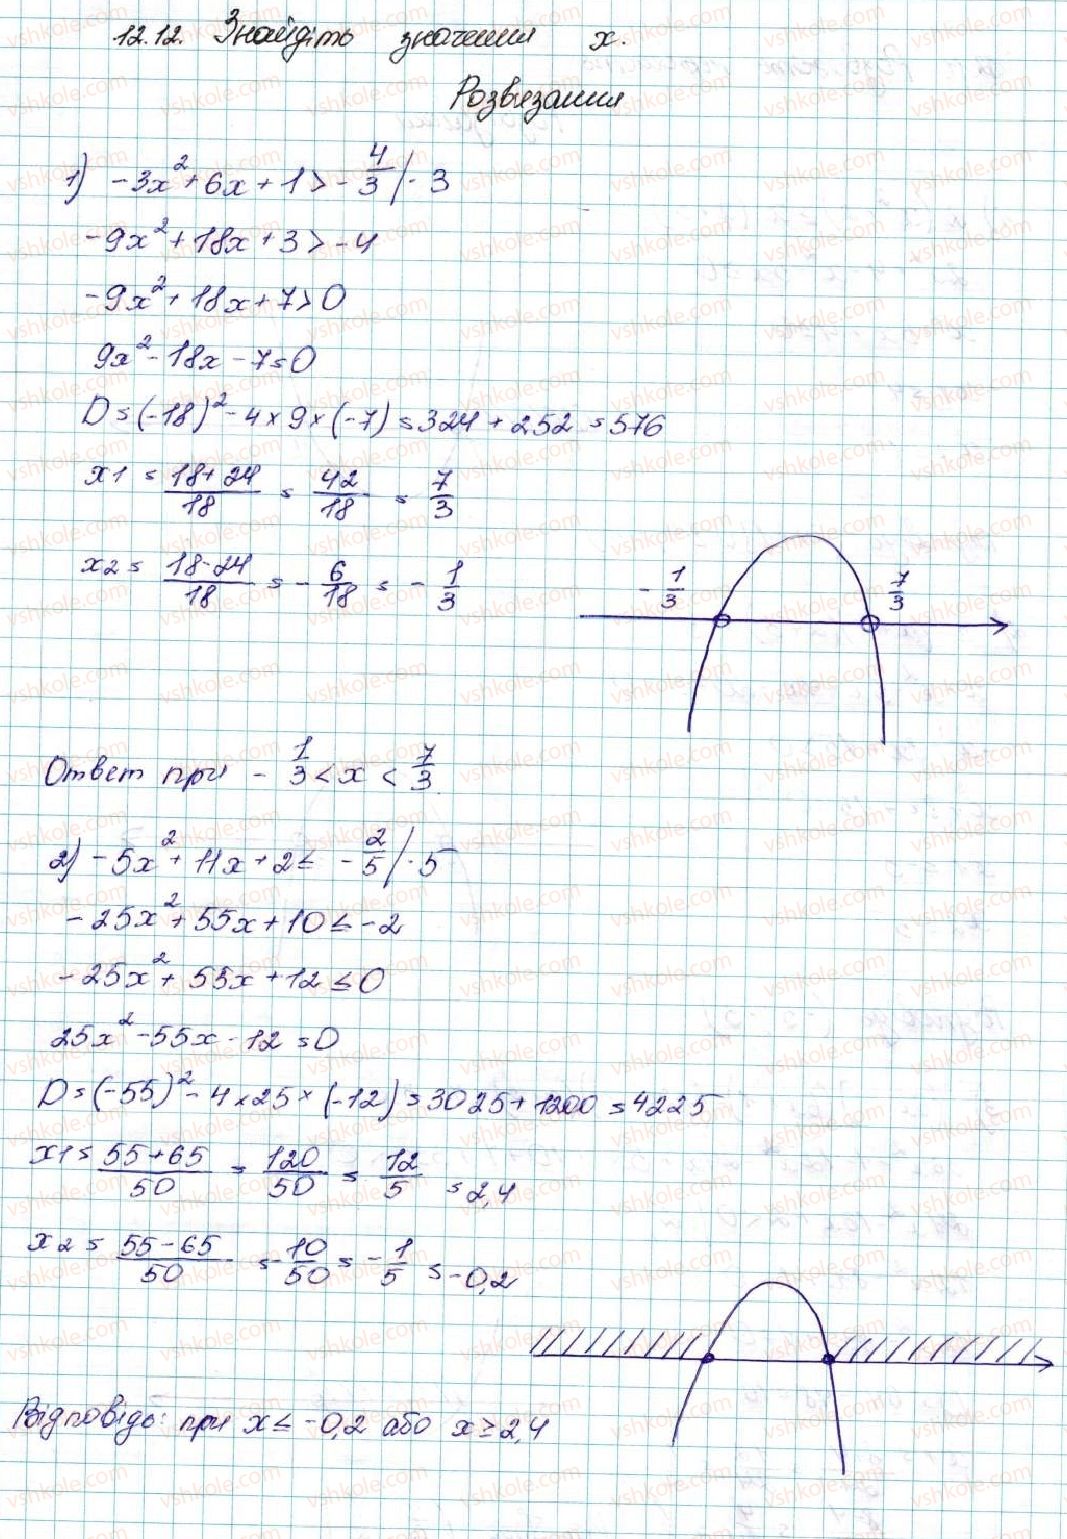 12.12. Знайдіть значення x.
Розв'язання
1) -3x² + 6x + 1 > -4/3 | · 3
-9x² + 18x + 3 > -4
-9x² + 18x + 7 > 0
9x² - 18x - 7 = 0
D = (-18)² - 4 × 9 × (-7) = 324 + 252 = 576
x1 = (18+24)/18 = 42/18 = 7/3
x2 = (18-24)/18 = -6/18 = -1/3
-1/3 7/3
Ответ при -1/3 < x < 7/3
2) -5x² + 11x + 2 ≤ -2/5 | · 5
-25x² + 55x + 10 ≤ -2
-25x² + 55x + 12 ≤ 0
25x² - 55x - 12 = 0
D = (-55)² - 4 × 25 × (-12) = 3025 + 1200 = 4225
x1 = (55+65)/50 = 120/50 = 12/5 = 2,4
x2 = (55-65)/50 = -10/50 = -1/5 = -0,2
Відповідь: при x ≤ -0,2 або x ≥ 2,4
vshkole.com